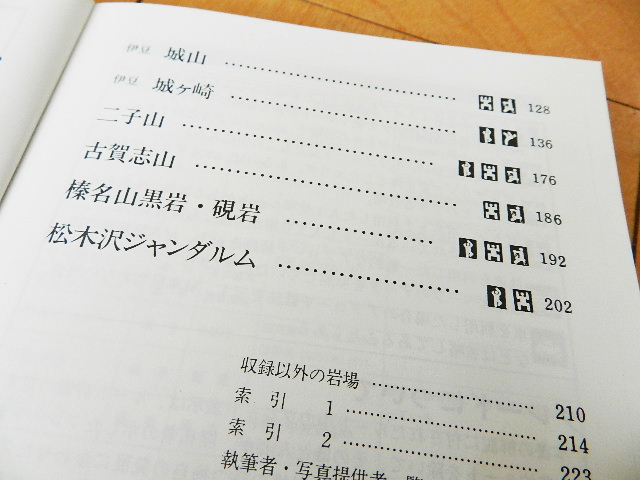 伊豆 城山 128
伊豆 城ヶ崎 136
二子山 176
古賀志山 186
榛名山黒岩・硯岩 192
松木沢ジャンダルム 202
収録以外の岩場 210
索引 1 214
索引 2 223
執筆者・写真提供者一覧